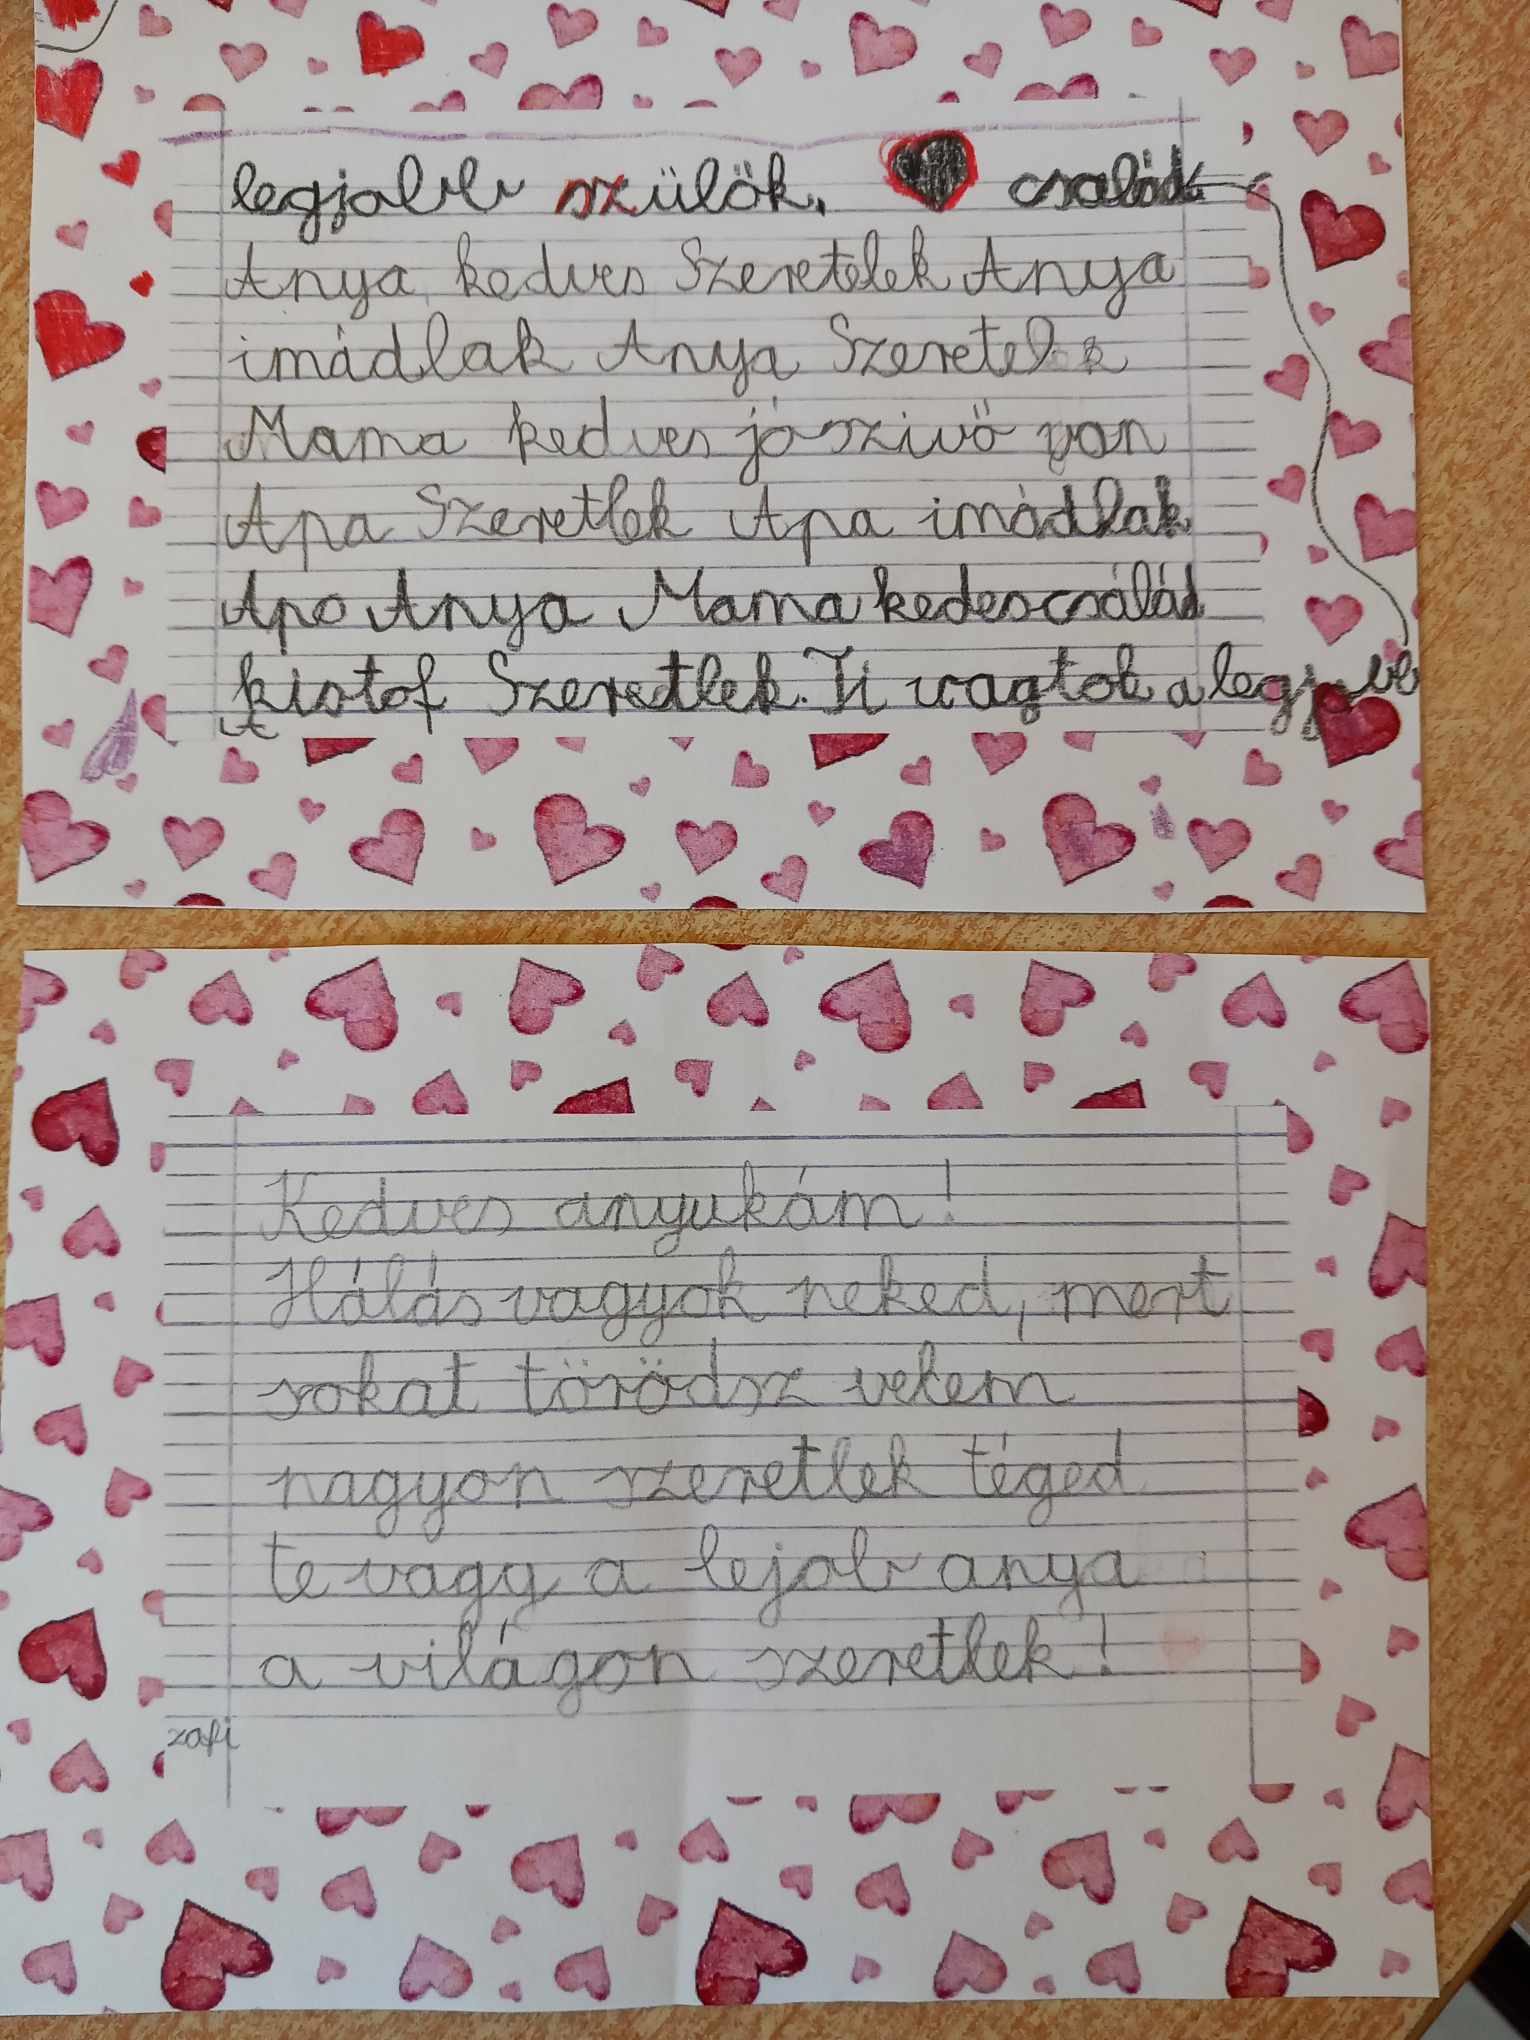 legjobb szülök. család
Anya kedves Szeretelek Anya
imádlak Anya Szeretelek
Mama kedves jó szivö von
Apa Szeretlek Apa imádlak
Apo Anya Mama kedescsálád
kistof Szeretlek. Ti vagtok a legjobb
Kedves anyukám!
Hálás vagyok neked, mert
sokat törödsz velem
nagyon szeretlek téged
te vagy a lejob anya
a világon szeretlek!
zofi